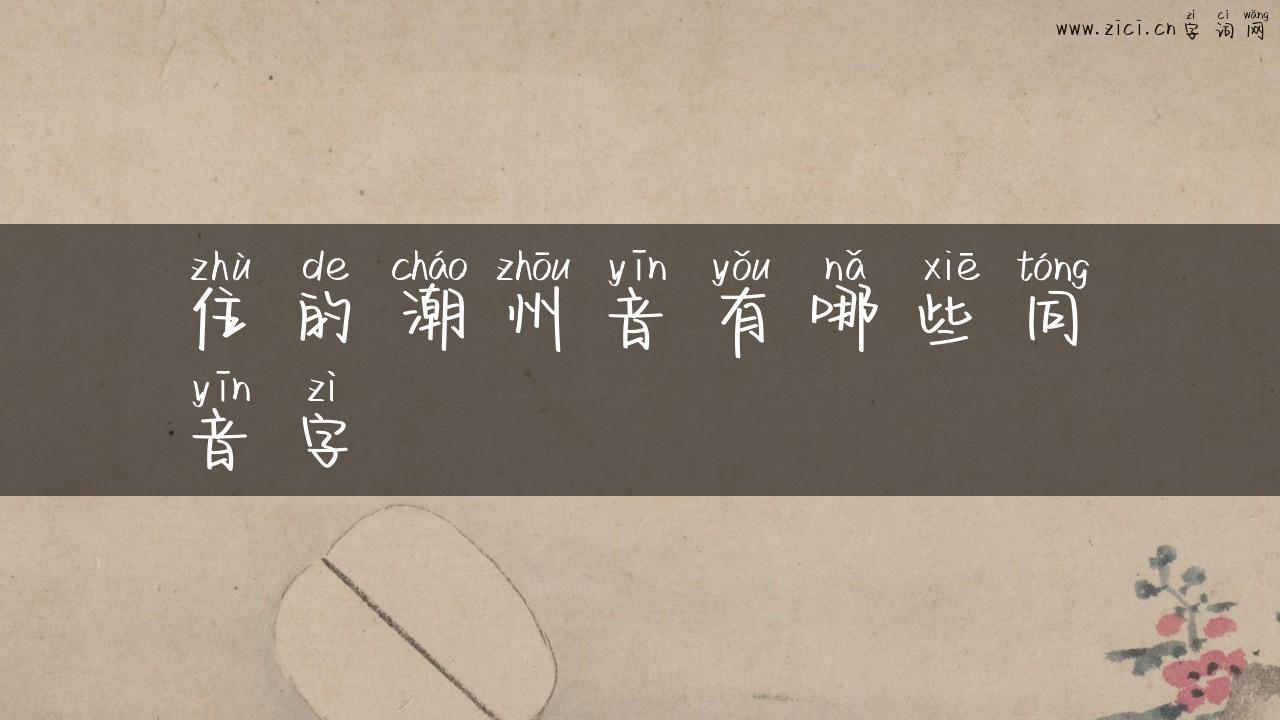 zì cí wǎng
www.zici.cn 字词网
zhù de cháo zhōu yīn yǒu nǎ xiē tóng
住的潮州音有哪些同
yīn zì
音字